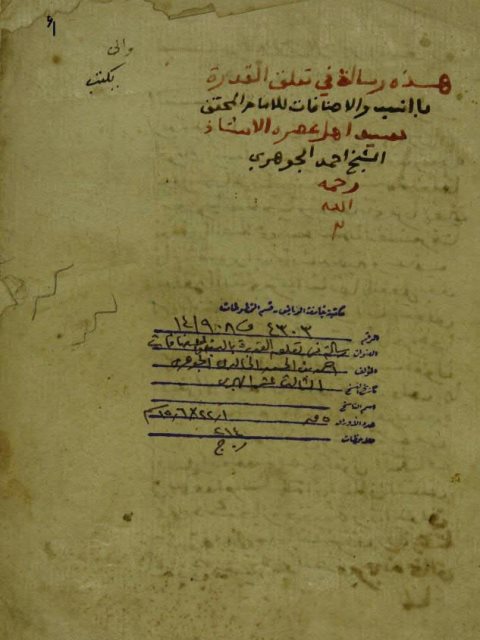 والى
بكتب
هذه رسالة في تعلق القدرة
بالنسب والاضافات للامام المحقق
وحيد اهل عصره الاستاذ
الشيخ احمد الجوهري
رحمه
الله
مكتبة جامعة الرياض - قسم المخطوطات
الرقم ٤٣٠٣ ف ١٤/٩٠٨
العنوان رسالة في تعلق القدرة بالنسب والاضافات
المؤلف احمد بن الحسن الخالدي الجوهري
تاريخ النسخ الثالث عشر الهجري
اسم الناسخ
عدد الأوراق ٥ ق
ملاحظات ٢١٤